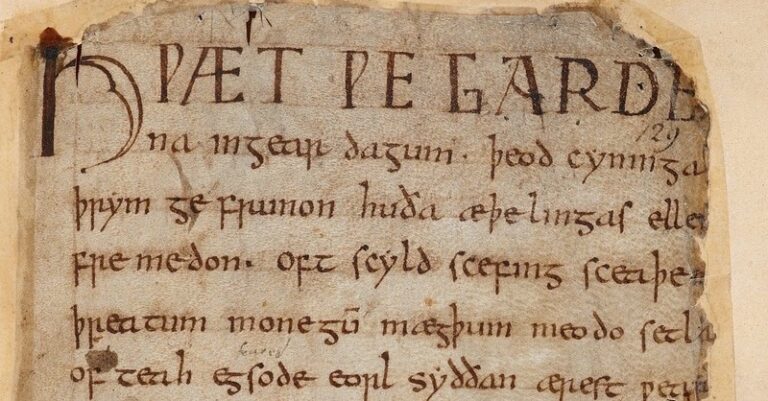 HǷÆT ǷE GARDE
129
na ingear dagum. þeod cyninga
þrym ge frunon huða æþelingas elle
fre medon. oft scyld scefing sceaþe
þreatum monegū mægþum meodo setla
of teah egsode eorl syððan ærest